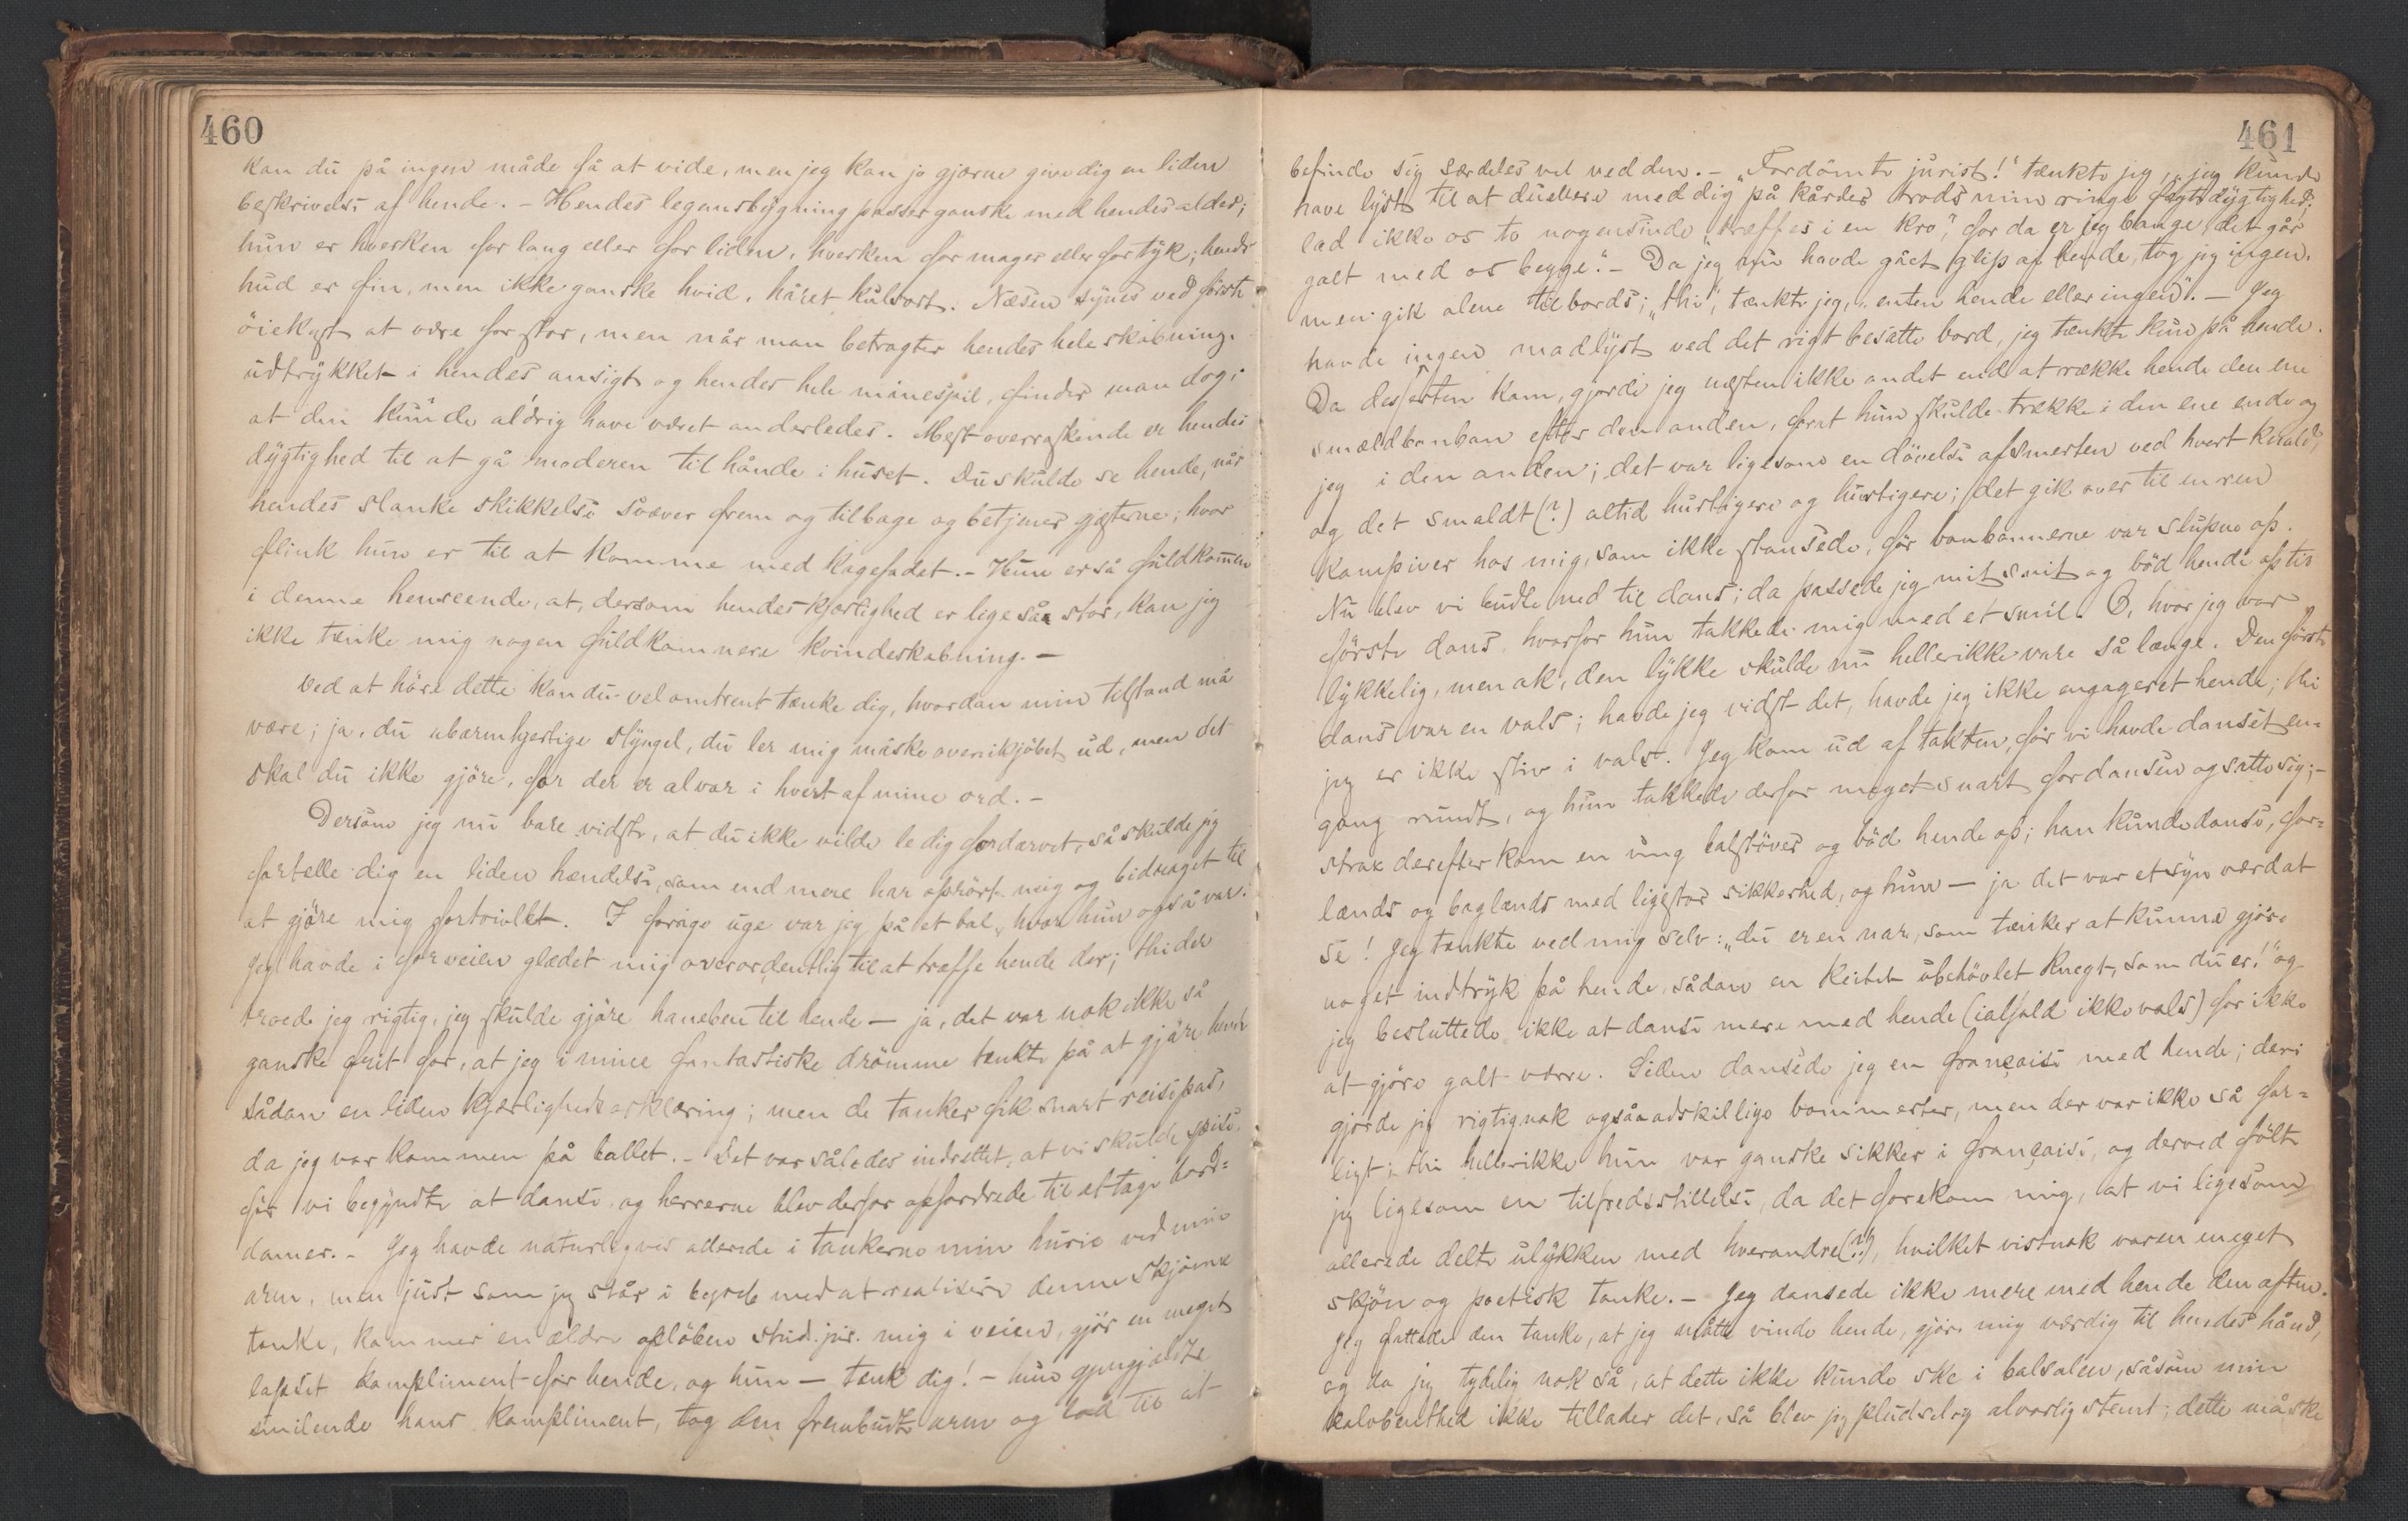 460
kan du på ingen måde få at vide, men jeg kan jo gjerne give dig en liden
beskrivelse af hende. – Hendes legemsbygning passer ganske med hendes alder;
hun er hverken for lang eller for liden, hverken for mager eller for tyk; hendes
hud er fin, men ikke ganske hvid, håret kulsort. Næsen synes ved første
öiekast at være for stor, men når man betragter hendes hele skabning,
udtrykket i hendes ansigt og hendes hele minespil, finder man dog,
at den kunde aldrig have været anderledes. Mest overraskende er hendes
dygtighed til at gå moderen til hånde i huset. Du skulde se hende, når
hendes slanke skikkelse svæver frem og tilbage og betjener gjæsterne; hvor
flink hun er til at komme med kagefadet. – Hun er så fuldkommen
i denne henseende, at, dersom hendes kjærlighed er lige så stor, kan jeg
ikke tænke mig nogen fuldkomnere kvindeskabning. –
Ved at höre dette kan du vel omtrent tænke dig, hvordan min tilstand må
være; ja, du ubarmhjertige slyngel, du ler mig måske ovenikjöbet ud, men det
skal du ikke gjöre, for der er alvor i hvert af mine ord. –
Dersom jeg nu bare vidste, at du ikke vilde le dig fordærvet, så skulde jeg
fortælle dig en liden hændelse, som end mere har oprört mig og bidraget til
at gjöre mig fortvivlet. I forrige uge var jeg på et bal, hvor hun også var.
Jeg havde i forveien glædet mig overordentlig til at træffe hende der; thi der
troede jeg rigtig, jeg skulde gjöre haneben til hende — ja, det var nok ikke så
ganske frit for, at jeg i mine fantastiske drömme tænkte på at gjöre hende
sådan en liden kjærlighedserklæring; men de tanker fik snart reisepas,
da jeg var kommen på ballet. – Det var således indrettet, at vi skulde spise,
för vi begyndte at danse, og herrerne blev derfor opfordrede til at tage bord=
damer. – Jeg havde naturligvis allerede i tankerne min hurie ved min
arm, men just som jeg står i begreb med at realisere denne skjönne
tanke, kommer en ældre oplöben stud. jur. mig i veien, gjör en meget
lapset kompliment for hende, og hun — tænk dig! – hun gjengjældte
smilende hans kompliment, tog den frembudte arm og lod til at
461
befinde sig særdeles vel ved den. – „Fordömte jurist!“ tænkte jeg, „jeg kunde
have lyst til at duellere med dig på kårder trods min ringe fægtedygtighed;
lad ikke os to nogensinde træffes i en kro“, for da er jeg bange, det går
galt med os begge.“ – Da jeg nu havde gået glip af hende, tog jeg ingen,
men gik alene tilbords; „thi“, tænkte jeg, „enten hende eller ingen“. — Jeg
havde ingen madlyst ved det rigt besatte bord, jeg tænkte kun på hende.
Da desserten kom, gjorde jeg næsten ikke andet end at række hende den ene
smældbonbon efter den anden, forat hun skulde trække i den ene ende og
jeg i den anden; det var ligesom en dövelse af smerten ved hvert knald,
og det smaldt (?) altid hurtigere og hurtigere; det gik over til en ren
kampiver hos mig, som ikke stansede, för bonbonnerne var slupne op.
Nu blev vi budte ned til dans; da passede jeg mit snit og böd hende op til
förste dans, hvorfor hun takkede mig med et smil. O, hvor jeg var
lykkelig, men ak, den lykke skulde nu hellerikke vare så længe. Den förste
dans var en vals; havde jeg vidst det, havde jeg ikke engageret hende; thi
jeg er ikke stiv i vals. Jeg kom ud af takten, för vi havde danset en=
gang rundt, og hun takkede derfor meget snart for dansen og satte sig; –
strax derefter kom en ung balstöver og böd hende op; han kunde danse, for=
lænds og baglænds med ligestor sikkerhed, og hun — ja det var et syn værd at
se! Jeg tænkte ved mig selv: „du er en nar, som tænker at kunne gjöre
noget indtryk på hende, sådan en keitet ubehövlet knegt, som du er!“ og
jeg besluttede ikke at danse mere med hende (ialfald ikke vals) for ikke
at gjöre galt værre. Siden dansede jeg en française med hende; deri
gjorde jeg rigtignok også adskillige bommerter, men der var ikke så far=
ligt; thi hellerikke hun var ganske sikker i française, og derved fölte
jeg ligesom en tilfredsstillelse, da det forekom mig, at vi ligesom
allerede delte ulykken med hverandre (?!), hvilket vistnok var en meget
skjön og poetisk tanke. – Jeg dansede ikke mere med hende den aften.
Jeg fattede den tanke, at jeg måtte vinde hende, gjöre mig værdig til hendes hånd,
og da jeg tydelig nok så, at dette ikke kunde ske i balsalen, såsom min
kalvbenthed ikke tillader det, så blev jeg pludselig alvorlig stemt; dette måske